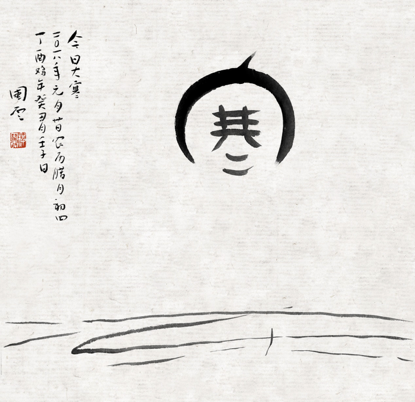 寒
今日大寒
二〇一八年元月廿日农历腊月初四
丁酉鸡年癸丑月壬子日